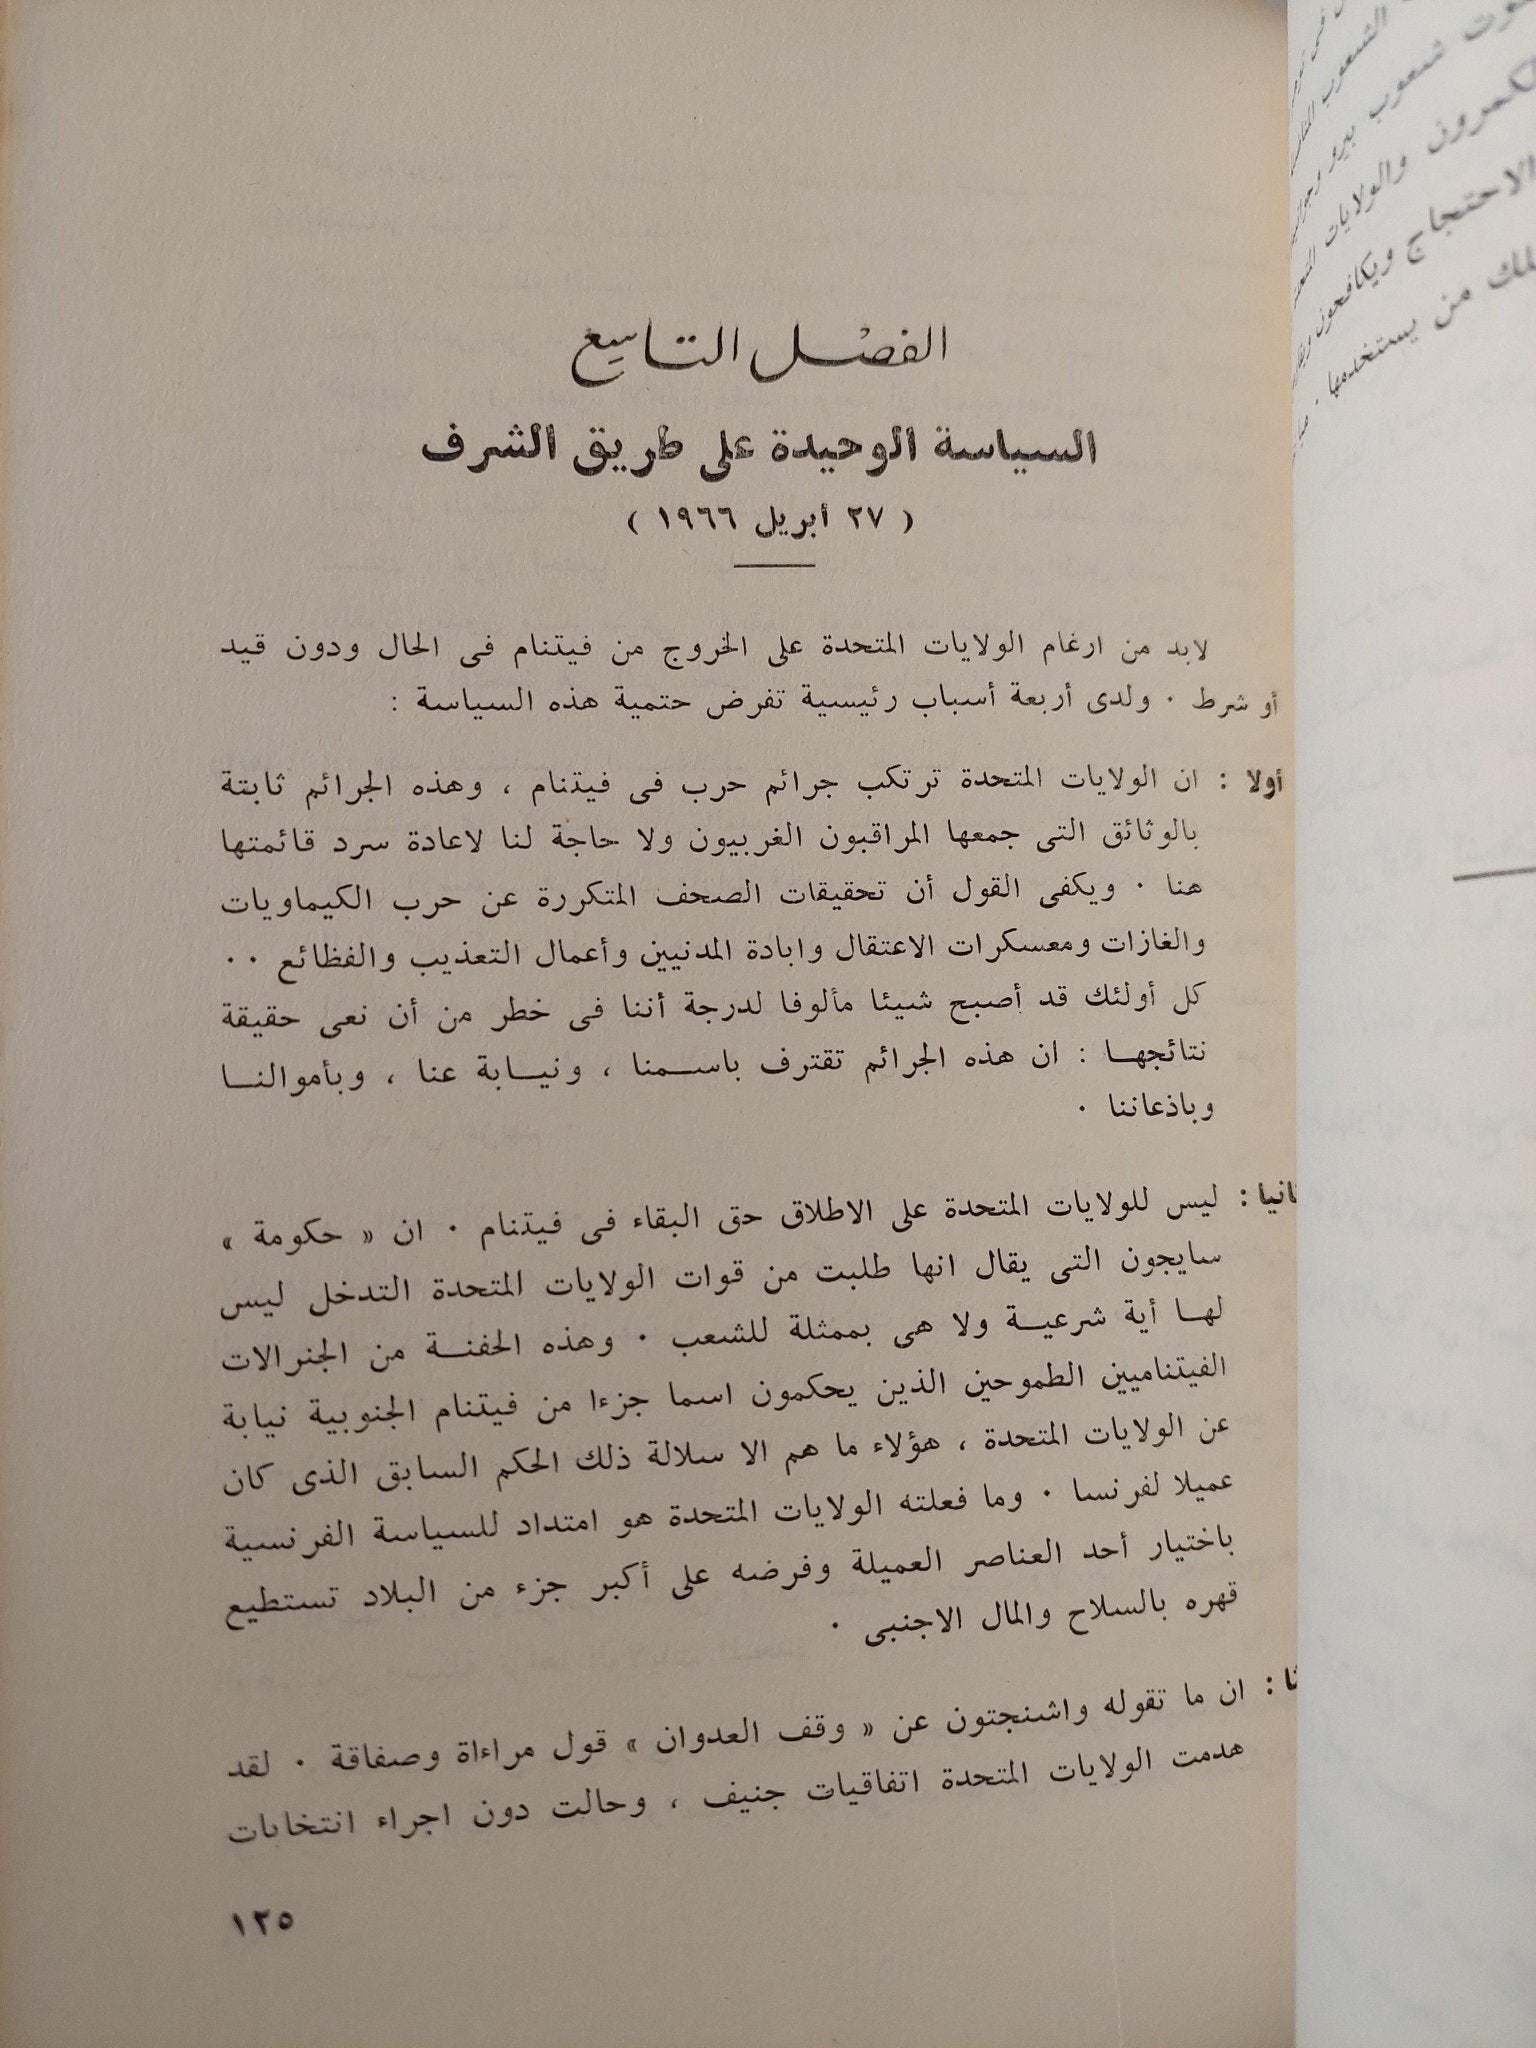 الفصل التاسع
السياسة الوحيدة على طريق الشرف
( ٢٧ أبريل ١٩٦٦ )
لابد من ارغام الولايات المتحدة على الخروج من فيتنام فى الحال ودون قيد
أو شرط ٠ ولدى أربعة أسباب رئيسية تفرض حتمية هذه السياسة :
أولا : ان الولايات المتحدة ترتكب جرائم حرب فى فيتنام ، وهذه الجرائم ثابتة
بالوثائق التى جمعها المراقبون الغربيون ولا حاجة لنا لاعادة سرد قائمتها
هنا ٠ ويكفى القول أن تحقيقات الصحف المتكررة عن حرب الكيماويات
والغازات ومعسكرات الاعتقال وابادة المدنيين وأعمال التعذيب والفظائع ٠٠
كل أولئك قد أصبح شيئا مألوفا لدرجة أننا فى خطر من أن نعى حقيقة
نتائجهـا : ان هذه الجرائم تقترف باسـمنا ، ونيـابة عنا ، وبأموالنـا
وباذعاننا ٠
انيا : ليس للولايات المتحدة على الاطلاق حق البقاء فى فيتنام ٠ ان « حكومة »
سايجون التى يقال انها طلبت من قوات الولايات المتحدة التدخل ليس
لهـا أية شرعيـة ولا هى بممثلة للشعب ٠ وهذه الحفنـة من الجنرالات
الفيتناميين الطموحين الذين يحكمون اسما جزءا من فيتنام الجنوبية نيابة
عن الولايات المتحدة ، هؤلاء ما هم الا سلالة ذلك الحكم السابق الذى كان
عميلا لفرنسا ٠ وما فعلته الولايات المتحدة هو امتداد للسياسة الفرنسية
باختيار أحد العناصر العميلة وفرضه على أكبر جزء من البلاد تستطيع
قهره بالسلاح والمال الاجنبى ٠
ثا : ان ما تقوله واشنجتون عن « وقف العدوان » قول مراءاة وصفاقة ٠ لقد
هدمت الولايات المتحدة اتفاقيات جنيف ، وحالت دون اجراء انتخابات
١٢٥
الشعوب
شعوب بيرو
الكمرون والولايات
الاحتجاج ويكافحون
من يستخدمها ٠